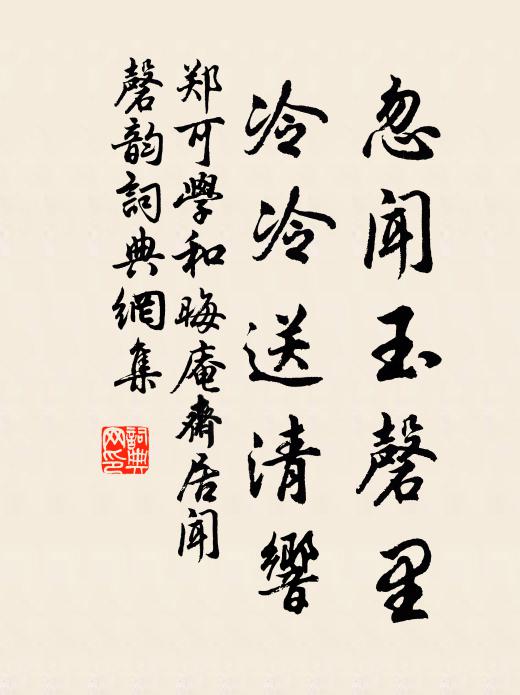 忽闻玉磬里
冷冷送清響
郑可學和晦庵齋居闻
磬韵詞典網集
詞典
网印